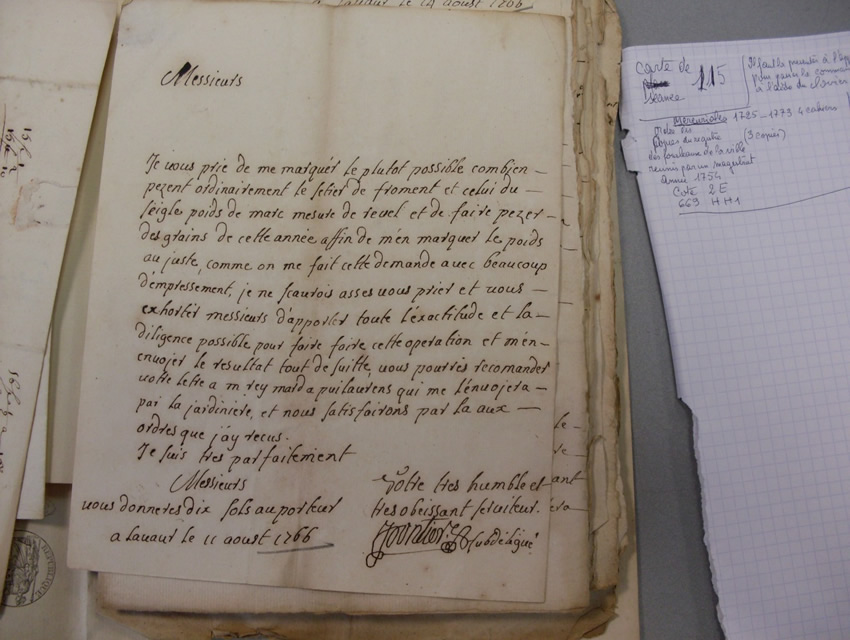 a Lavaur le 14 aoust 1766
Messieurs
Je vous prie de me marquer le plutot possible combien
pezent ordinairement le setier de froment et celui du
seigle poids de marc mesure de revel et de faire pezer
des grains de cette année affin de m'en marquer le poids
au juste, comme on me fait cette demande avec beaucoup
d'empressement, je ne scaurois asses vous prier et vous
exhorter messieurs d'apporter toute l'exactitude et la
diligence possible pour faire faire cette operation et m'en
envoyer le resultat tout de suitte, vous pourrés recomander
votre lettre a mr rey mard a puilaurens qui me l'envojera
par la jardiniere, et nous satisfairons par la aux
ordres que j'ay recus.
Je suis tres parfaitement
Messieurs
Votre tres humble et
tres obeissant serviteur.
vous donneres dix sols au porteur
a Lavaur le 11 aoust 1766
subdelegué
Carte de
séance
115
Mercuriales 1725-1773 4 cahiers
(3 copiés)
des fourleaux de la ville
remis par un magistrat
année 1754
Cote 2E
669 HH1